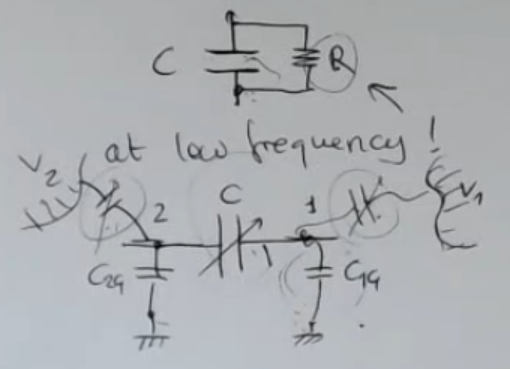 C R
at low frequency!
V2
2 C 1
V1
C2G C1G